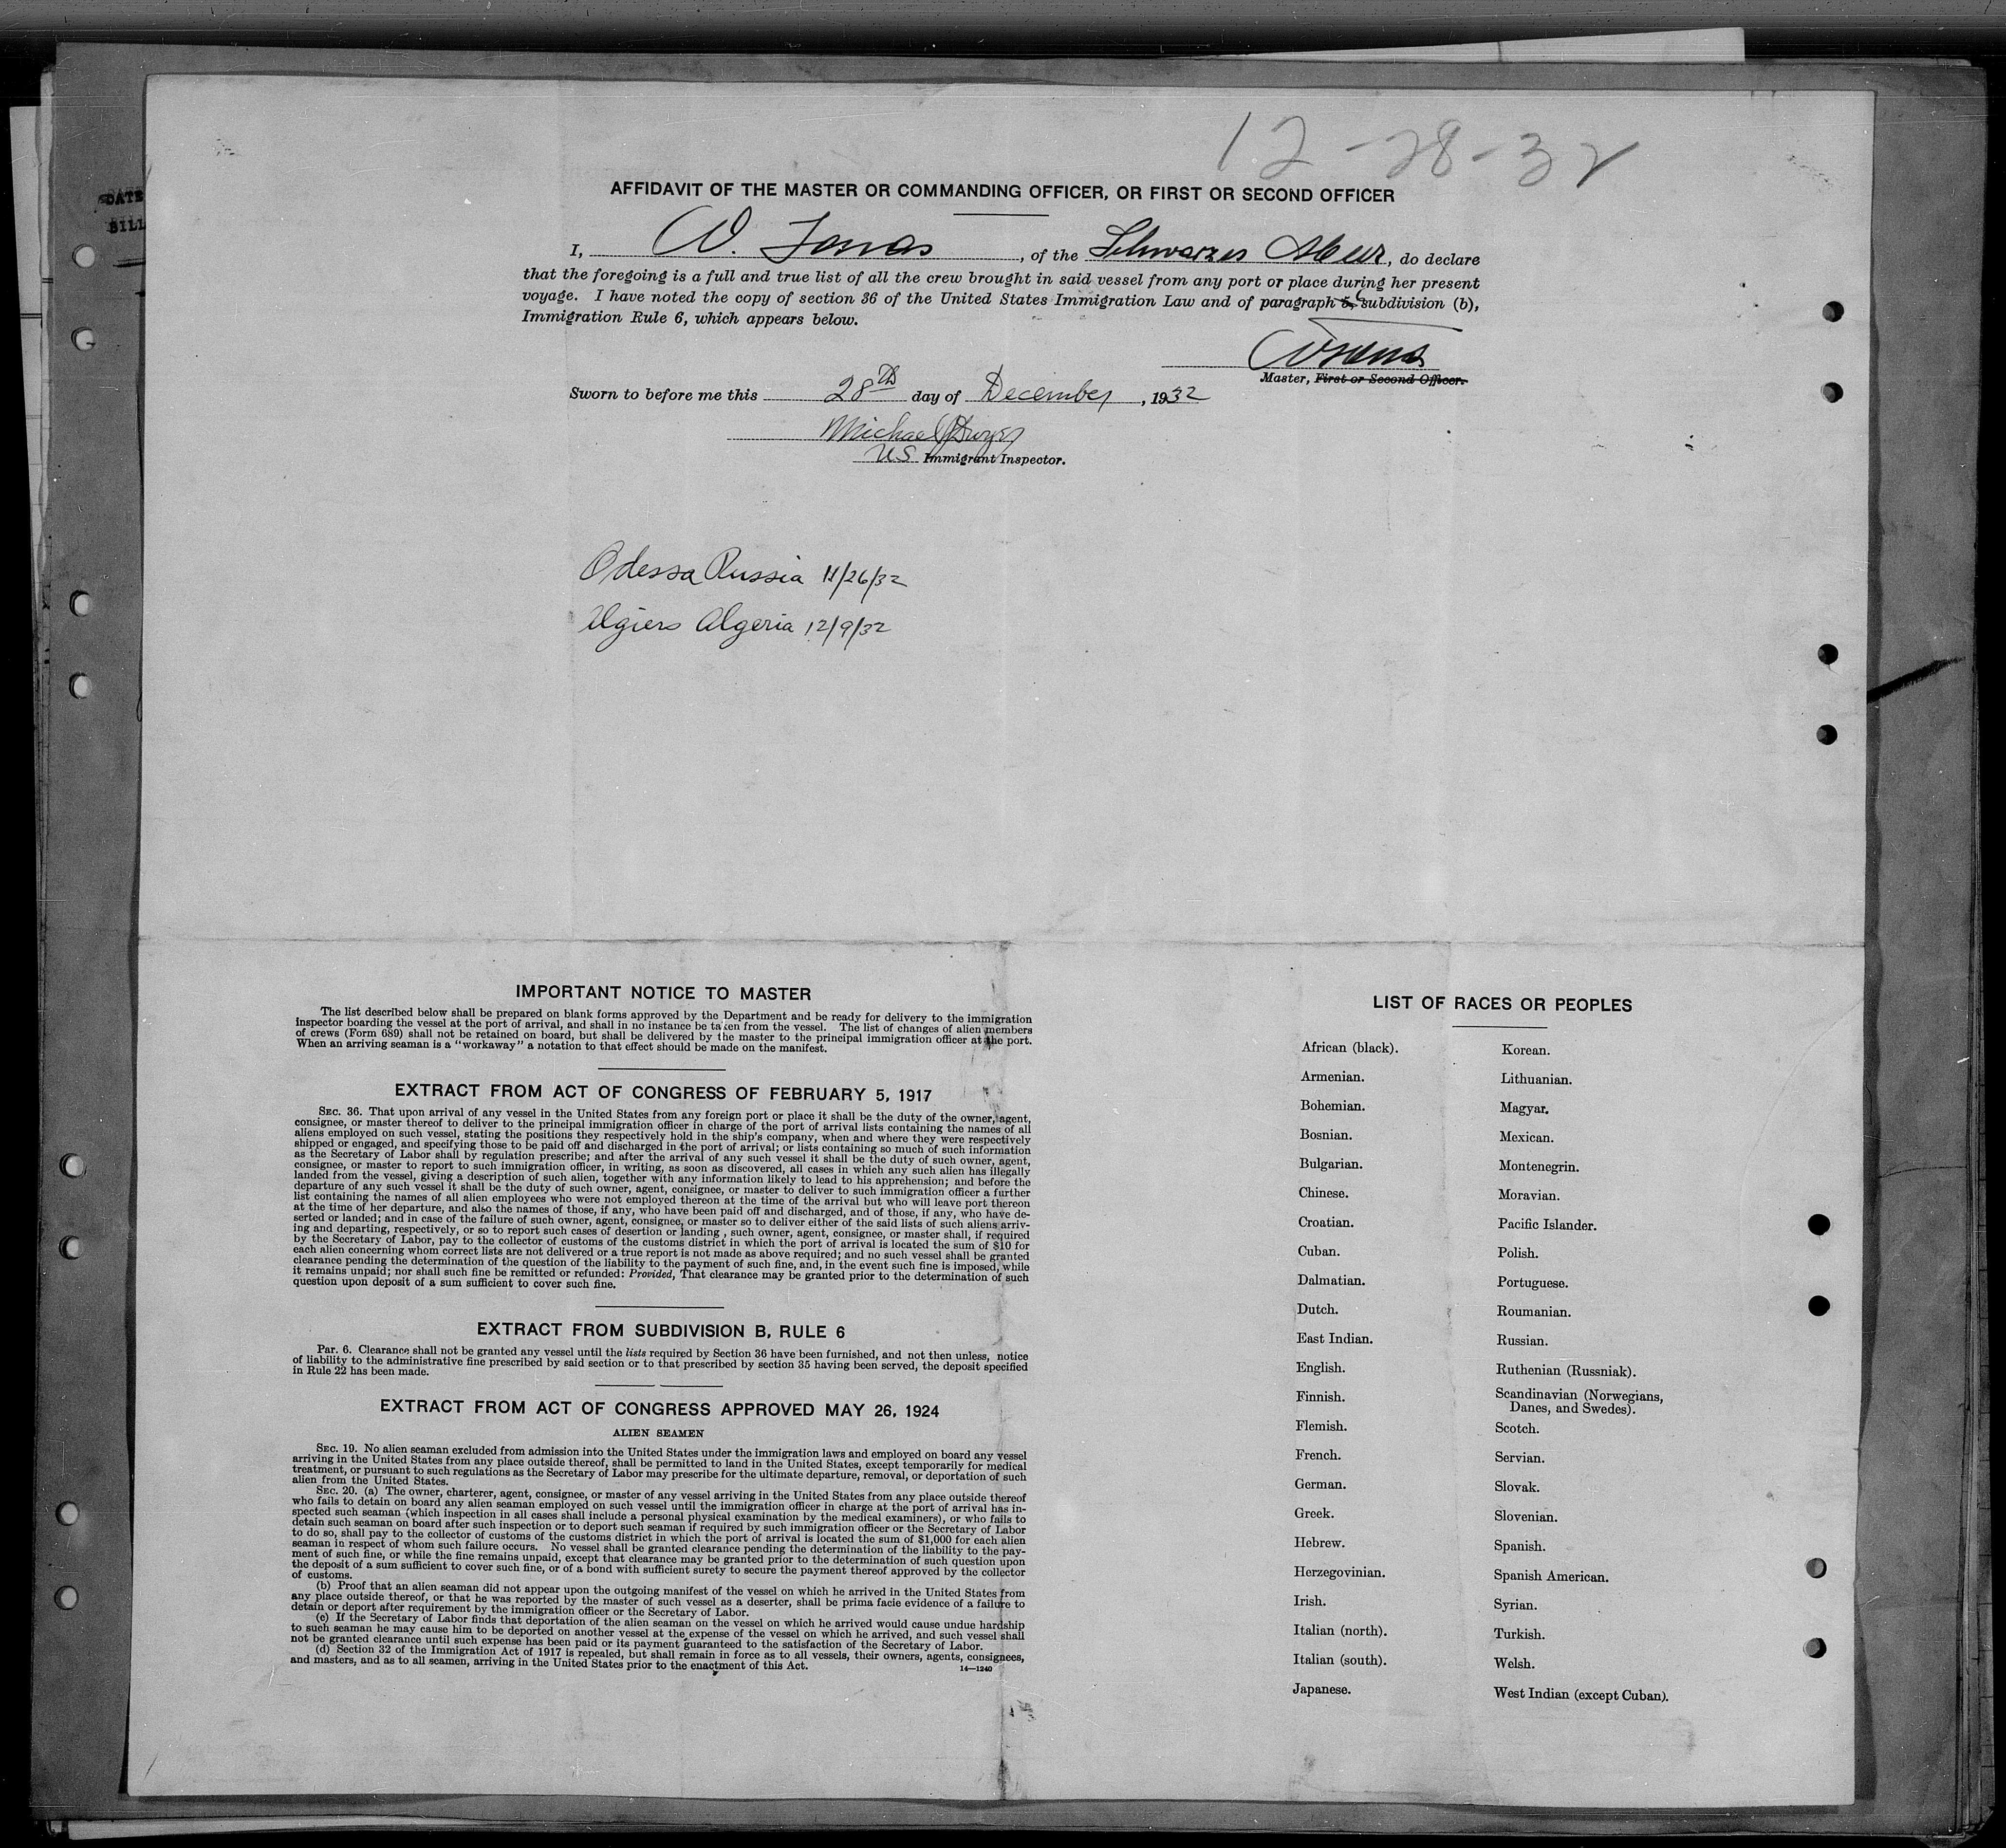 12-28-32
DATE
BILL
AFFIDAVIT OF THE MASTER OR COMMANDING OFFICER, OR FIRST OR SECOND OFFICER
I, W. , of the Schwarzes Meer, do declare
that the foregoing is a full and true list of all the crew brought in said vessel from any port or place during her present
voyage. I have noted the copy of section 36 of the United States Immigration Law and of paragraph 5, 6 subdivision (b),
Immigration Rule 6, which appears below.
Master, First or Second Officer.
Sworn to before me this 28th day of December, 1932
Michael Dwyer
US Immigrant Inspector.
Odessa Russia 11/26/32
Algiers Algeria 12/9/32
IMPORTANT NOTICE TO MASTER
The list described below shall be prepared on blank forms approved by the Department and be ready for delivery to the immigration
inspector boarding the vessel at the port of arrival, and shall in no instance be taken from the vessel. The list of changes of alien members
of crews (Form 689) shall not be retained on board, but shall be delivered by the master to the principal immigration officer at the port.
When an arriving seaman is a "workaway" a notation to that effect should be made on the manifest.
EXTRACT FROM ACT OF CONGRESS OF FEBRUARY 5, 1917
SEC. 36. That upon arrival of any vessel in the United States from any foreign port or place it shall be the duty of the owner, agent,
consignee, or master thereof to deliver to the principal immigration officer in charge of the port of arrival lists containing the names of all
aliens employed on such vessel, stating the positions they respectively hold in the ship's company, when and where they were respectively
shipped or engaged, and specifying those to be paid off and discharged in the port of arrival; or lists containing so much of such information
as the Secretary of Labor shall by regulation prescribe; and after the arrival of any such vessel it shall be the duty of such owner, agent,
consignee, or master to report to such immigration officer, in writing, as soon as discovered, all cases in which any such alien has illegally
landed from the vessel, giving a description of such alien, together with any information likely to lead to his apprehension; and before the
departure of any such vessel it shall be the duty of such owner, agent, consignee, or master to deliver to such immigration officer a further
list containing the names of all alien employees who were not employed thereon at the time of the arrival but who will leave port thereon
at the time of her departure, and also the names of those, if any, who have been paid off and discharged, and of those, if any, who have de-
serted or landed; and in case of the failure of such owner, agent, consignee, or master so to deliver either of the said lists of such aliens arriv-
ing and departing, respectively, or so to report such cases of desertion or landing , such owner, agent, consignee, or master shall, if required
by the Secretary of Labor, pay to the collector of customs of the customs district in which the port of arrival is located the sum of $10 for
each alien concerning whom correct lists are not delivered or a true report is not made as above required; and no such vessel shall be granted
clearance pending the determination of the question of the liability to the payment of such fine, and, in the event such fine is imposed, while
it remains unpaid; nor shall such fine be remitted or refunded: Provided, That clearance may be granted prior to the determination of such
question upon deposit of a sum sufficient to cover such fine.
EXTRACT FROM SUBDIVISION B, RULE 6
Par. 6. Clearance shall not be granted any vessel until the lists required by Section 36 have been furnished, and not then unless, notice
of liability to the administrative fine prescribed by said section or to that prescribed by section 35 having been served, the deposit specified
in Rule 22 has been made.
EXTRACT FROM ACT OF CONGRESS APPROVED MAY 26, 1924
ALIEN SEAMEN
SEC. 19. No alien seaman excluded from admission into the United States under the immigration laws and employed on board any vessel
arriving in the United States from any place outside thereof, shall be permitted to land in the United States, except temporarily for medical
treatment, or pursuant to such regulations as the Secretary of Labor may prescribe for the ultimate departure, removal, or deportation of such
alien from the United States.
SEC. 20. (a) The owner, charterer, agent, consignee, or master of any vessel arriving in the United States from any place outside thereof
who fails to detain on board any alien seaman employed on such vessel until the immigration officer in charge at the port of arrival has in-
spected such seaman (which inspection in all cases shall include a personal physical examination by the medical examiners), or who fails to
detain such seaman on board after such inspection or to deport such seaman if required by such immigration officer or the Secretary of Labor
to do so, shall pay to the collector of customs of the customs district in which the port of arrival is located the sum of $1,000 for each alien
seaman in respect of whom such failure occurs. No vessel shall be granted clearance pending the determination of the liability to the pay-
ment of such fine, or while the fine remains unpaid, except that clearance may be granted prior to the determination of such question upon
the deposit of a sum sufficient to cover such fine, or of a bond with sufficient surety to secure the payment thereof approved by the collector
of customs.
(b) Proof that an alien seaman did not appear upon the outgoing manifest of the vessel on which he arrived in the United States from
any place outside thereof, or that he was reported by the master of such vessel as a deserter, shall be prima facie evidence of a failure to
detain or deport after requirement by the immigration officer or the Secretary of Labor.
(c) If the Secretary of Labor finds that deportation of the alien seaman on the vessel on which he arrived would cause undue hardship
to such seaman he may cause him to be deported on another vessel at the expense of the vessel on which he arrived, and such vessel shall
not be granted clearance until such expense has been paid or its payment guaranteed to the satisfaction of the Secretary of Labor.
(d) Section 32 of the Immigration Act of 1917 is repealed, but shall remain in force as to all vessels, their owners, agents, consignees,
and masters, and as to all seamen, arriving in the United States prior to the enactment of this Act.
14—1240
LIST OF RACES OR PEOPLES
African (black).
Armenian.
Bohemian.
Bosnian.
Bulgarian.
Chinese.
Croatian.
Cuban.
Dalmatian.
Dutch.
East Indian.
English.
Finnish.
Flemish.
French.
German.
Greek.
Hebrew.
Herzegovinian.
Irish.
Italian (north).
Italian (south).
Japanese.
Korean.
Lithuanian.
Magyar.
Mexican.
Montenegrin.
Moravian.
Pacific Islander.
Polish.
Portuguese.
Roumanian.
Russian.
Ruthenian (Russniak).
Scandinavian (Norwegians,
Danes, and Swedes).
Scotch.
Servian.
Slovak.
Slovenian.
Spanish.
Spanish American.
Syrian.
Turkish.
Welsh.
West Indian (except Cuban).